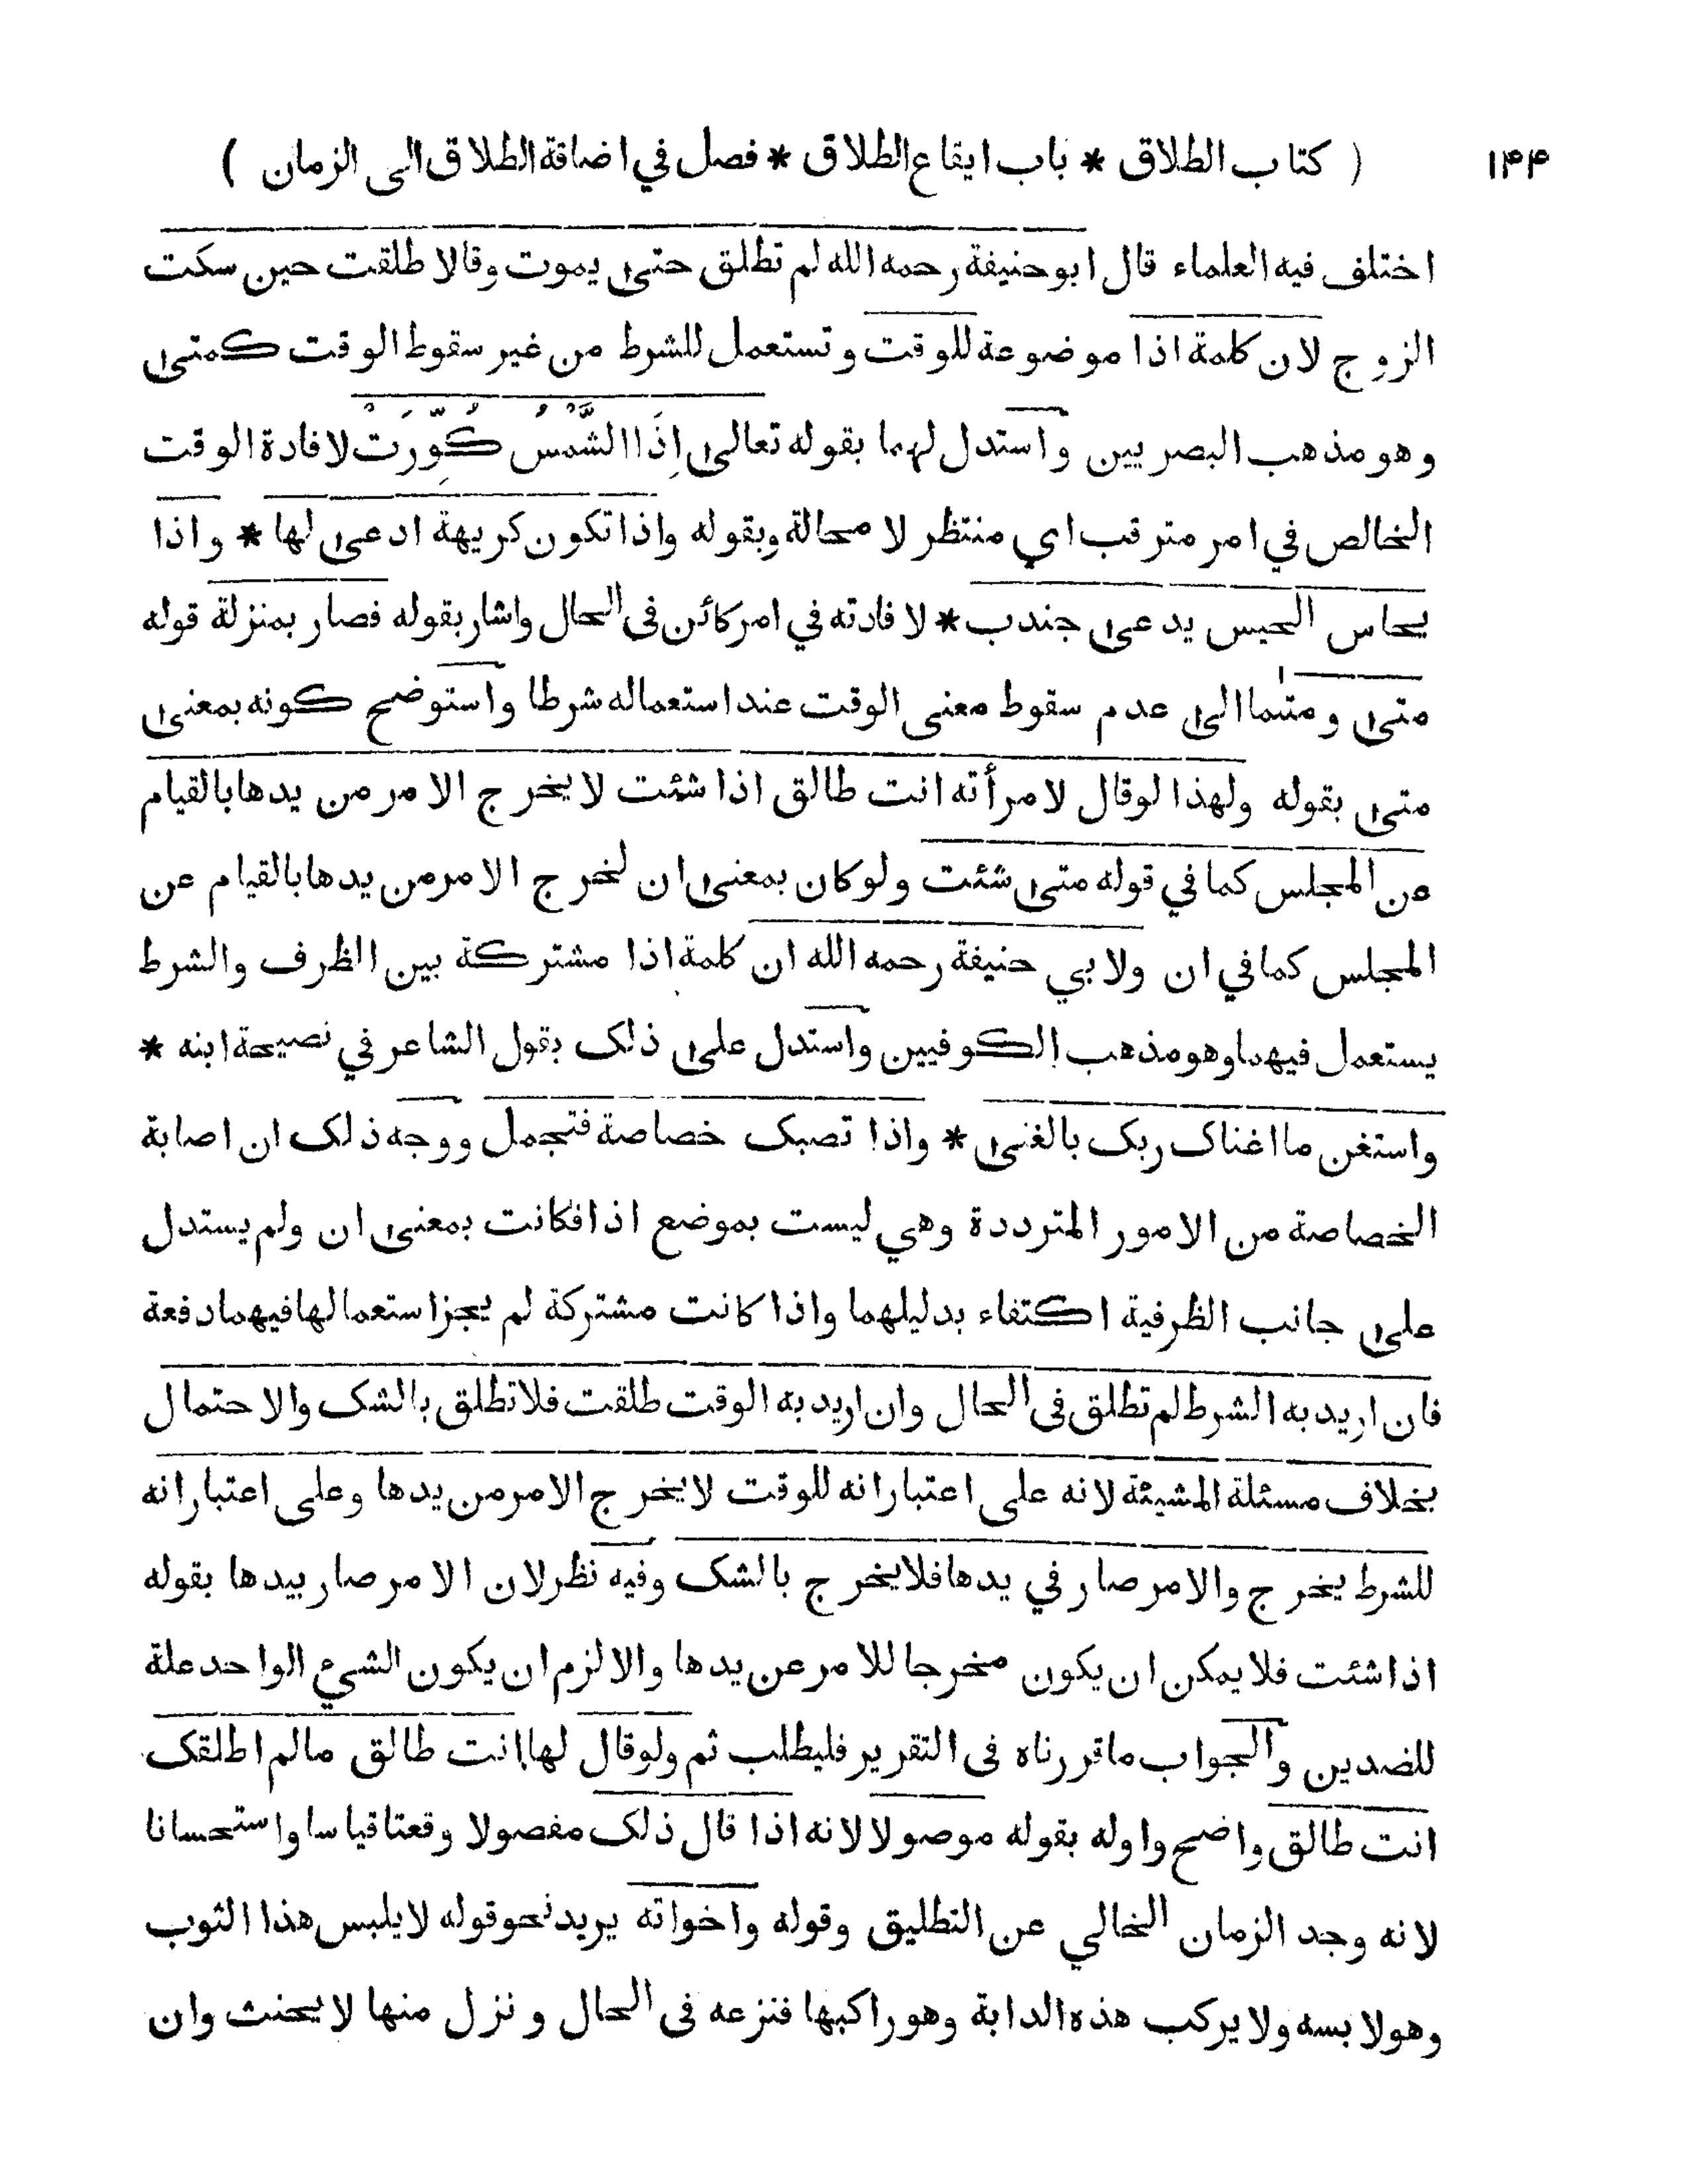 ۱۴۴ ( كتاب الطلاق * باب ايقاع الطلاق * فصل في اضافة الطلاق الى الزمان )
اختلف فيه العلماء قال ابو حنيفة رحمه الله لم تطلق حتى يموت وقالا طلقت حين سكت
الزوج لان كلمة اذا موضوعة للوقت و تستعمل للشرط من غير سقوط الوقت كمتى
وهو مذهب البصريين واستدل لهما بقوله تعالى اِذَا الشَّمْسُ كُوِّرَتْ لافادة الوقت
الخالص في امر مترقب اي منتظر لا محالة وبقوله واذا تكون كريهة ادعى لها * واذا
يحاس الحيس يدعى جندب * لافادته في امر كائن فى الحال واشار بقوله فصار بمنزلة قوله
متى و متىما الى عدم سقوط معنى الوقت عند استعماله شرطا واستوضح كونه بمعنى
متى بقوله ولهذا لوقال لامرأته انت طالق اذا شئت لا يخرج الامر من يدها بالقيام
عن المجلس كما في قوله متى شئت ولوكان بمعنى ان لخرج الامر من يدها بالقيام عن
المجلس كما في ان ولابي حنيفة رحمه الله ان كلمة اذا مشتركة بين الظرف والشرط
يستعمل فيهما وهو مذهب الكوفيين واستدل على ذلك بقول الشاعر في نصيحة ابنه *
واستغن ما اغناک ربک بالغنى * واذا تصبک خصاصة فتجمل ووجه ذلک ان اصابة
الخصاصة من الامور المترددة وهي ليست بموضع اذا فكانت بمعنى ان ولم يستدل
على جانب الظرفية اكتفاء بدليلهما واذا كانت مشتركة لم يجز استعمالها فيهما دفعة
فان اريد به الشرط لم تطلق فى الحال وان اريد به الوقت طلقت فلا تطلق بالشک والاحتمال
بخلاف مسئلة المشيئة لانه على اعتبار انه للوقت لا يخرج الامر من يدها وعلى اعتبار انه
للشرط يخرج والامر صار في يدها فلا يخرج بالشک وفيه نظر لان الامر صار بيدها بقوله
اذا شئت فلا يمكن ان يكون مخرجا للامر عن يدها والا لزم ان يكون الشيء الواحد علة
للضدين والجواب ما قررناه فى التقرير فليطلب ثم ولوقال لها انت طالق مالم اطلقک
انت طالق واضح واوله بقوله موصولا لانه اذا قال ذلک مفصولا وقعتا قياسا واستحسانا
لانه وجد الزمان الخالي عن التطليق وقوله واخواته يريد نحو قوله لا يلبس هذا الثوب
وهو لابسه ولا يركب هذه الدابة وهو راكبها فنزعه فى الحال و نزل منها لا يحنث وان